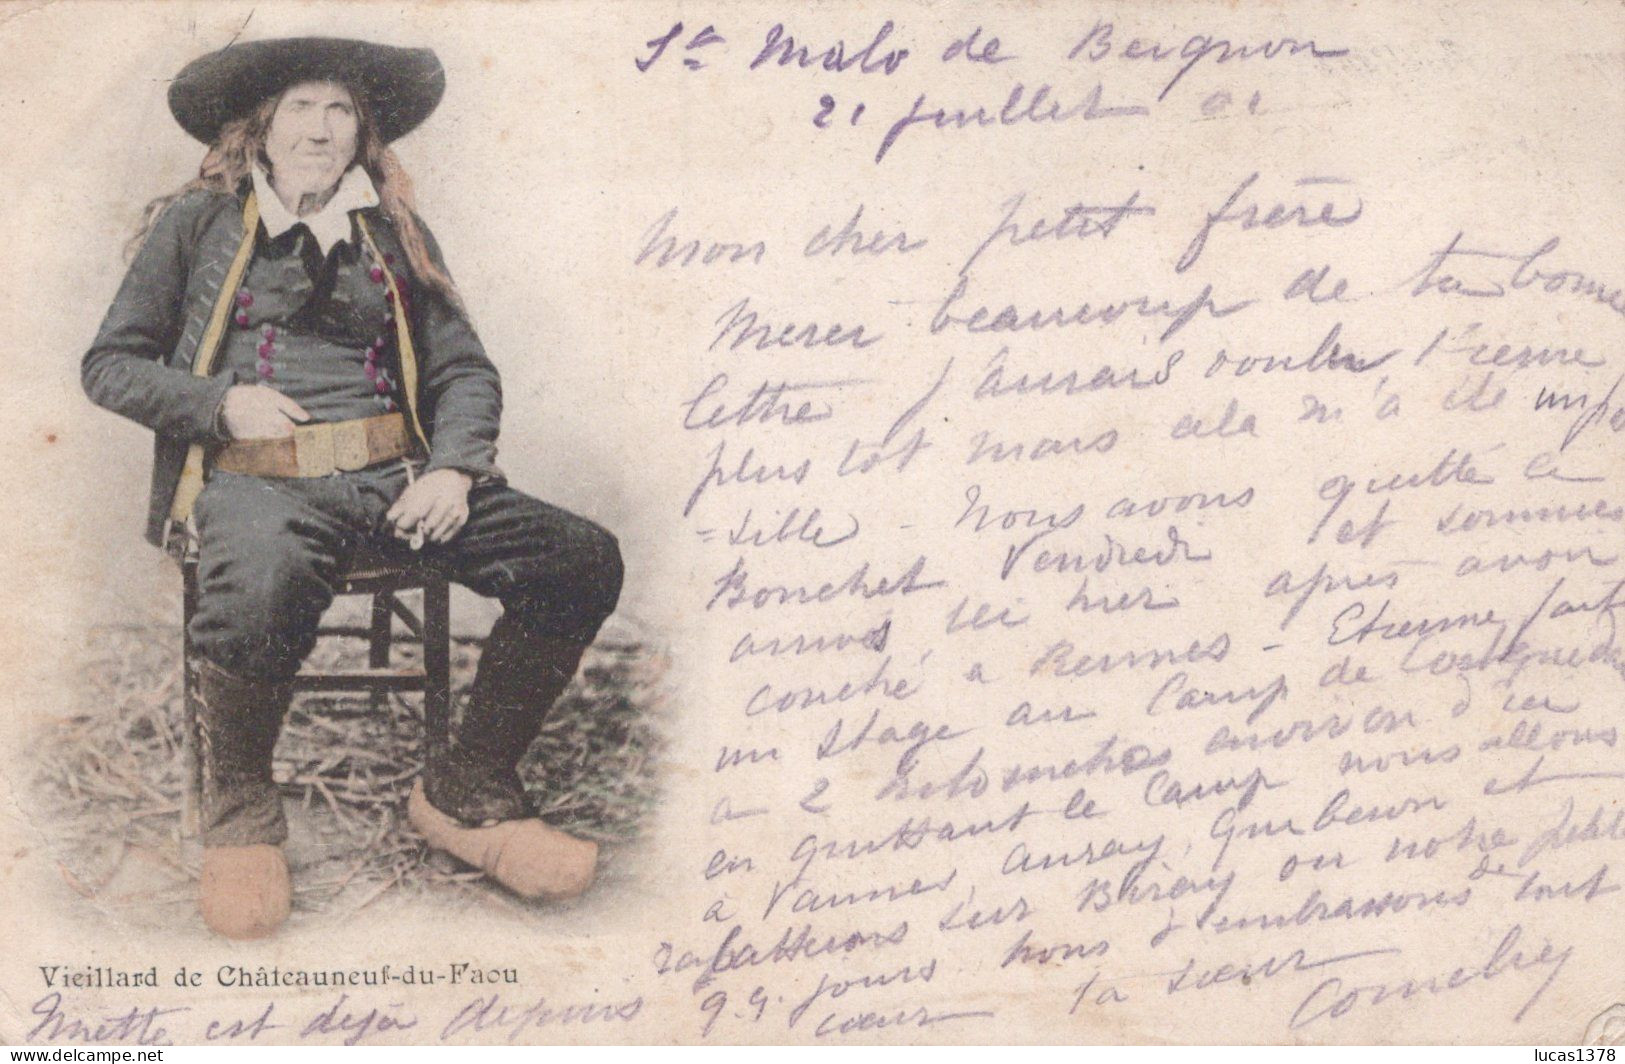 St Malo de Beignon
21 juillet 01
Mon cher petit frère
Merci beaucoup de ta bonne
lettre j'aurais voulu t'écrire
plus tôt mais cela m'a été impos
=sible - Nous avons quitté le
Bouchet Vendredi et sommes
arrivés ici hier après avoir
couché à Rennes - Etienne fait
un stage au Camp de Coëtquidan
à 2 kilomètres environ d'ici
en quittant le Camp nous allons
à Vannes, Auray, Quiberon et
rabatterons sur où notre petite
Vieillard de Châteauneuf-du-Faou
est déjà depuis
qq. jours nous t'embrassons de tout
cœur ta sœur
lucas1378